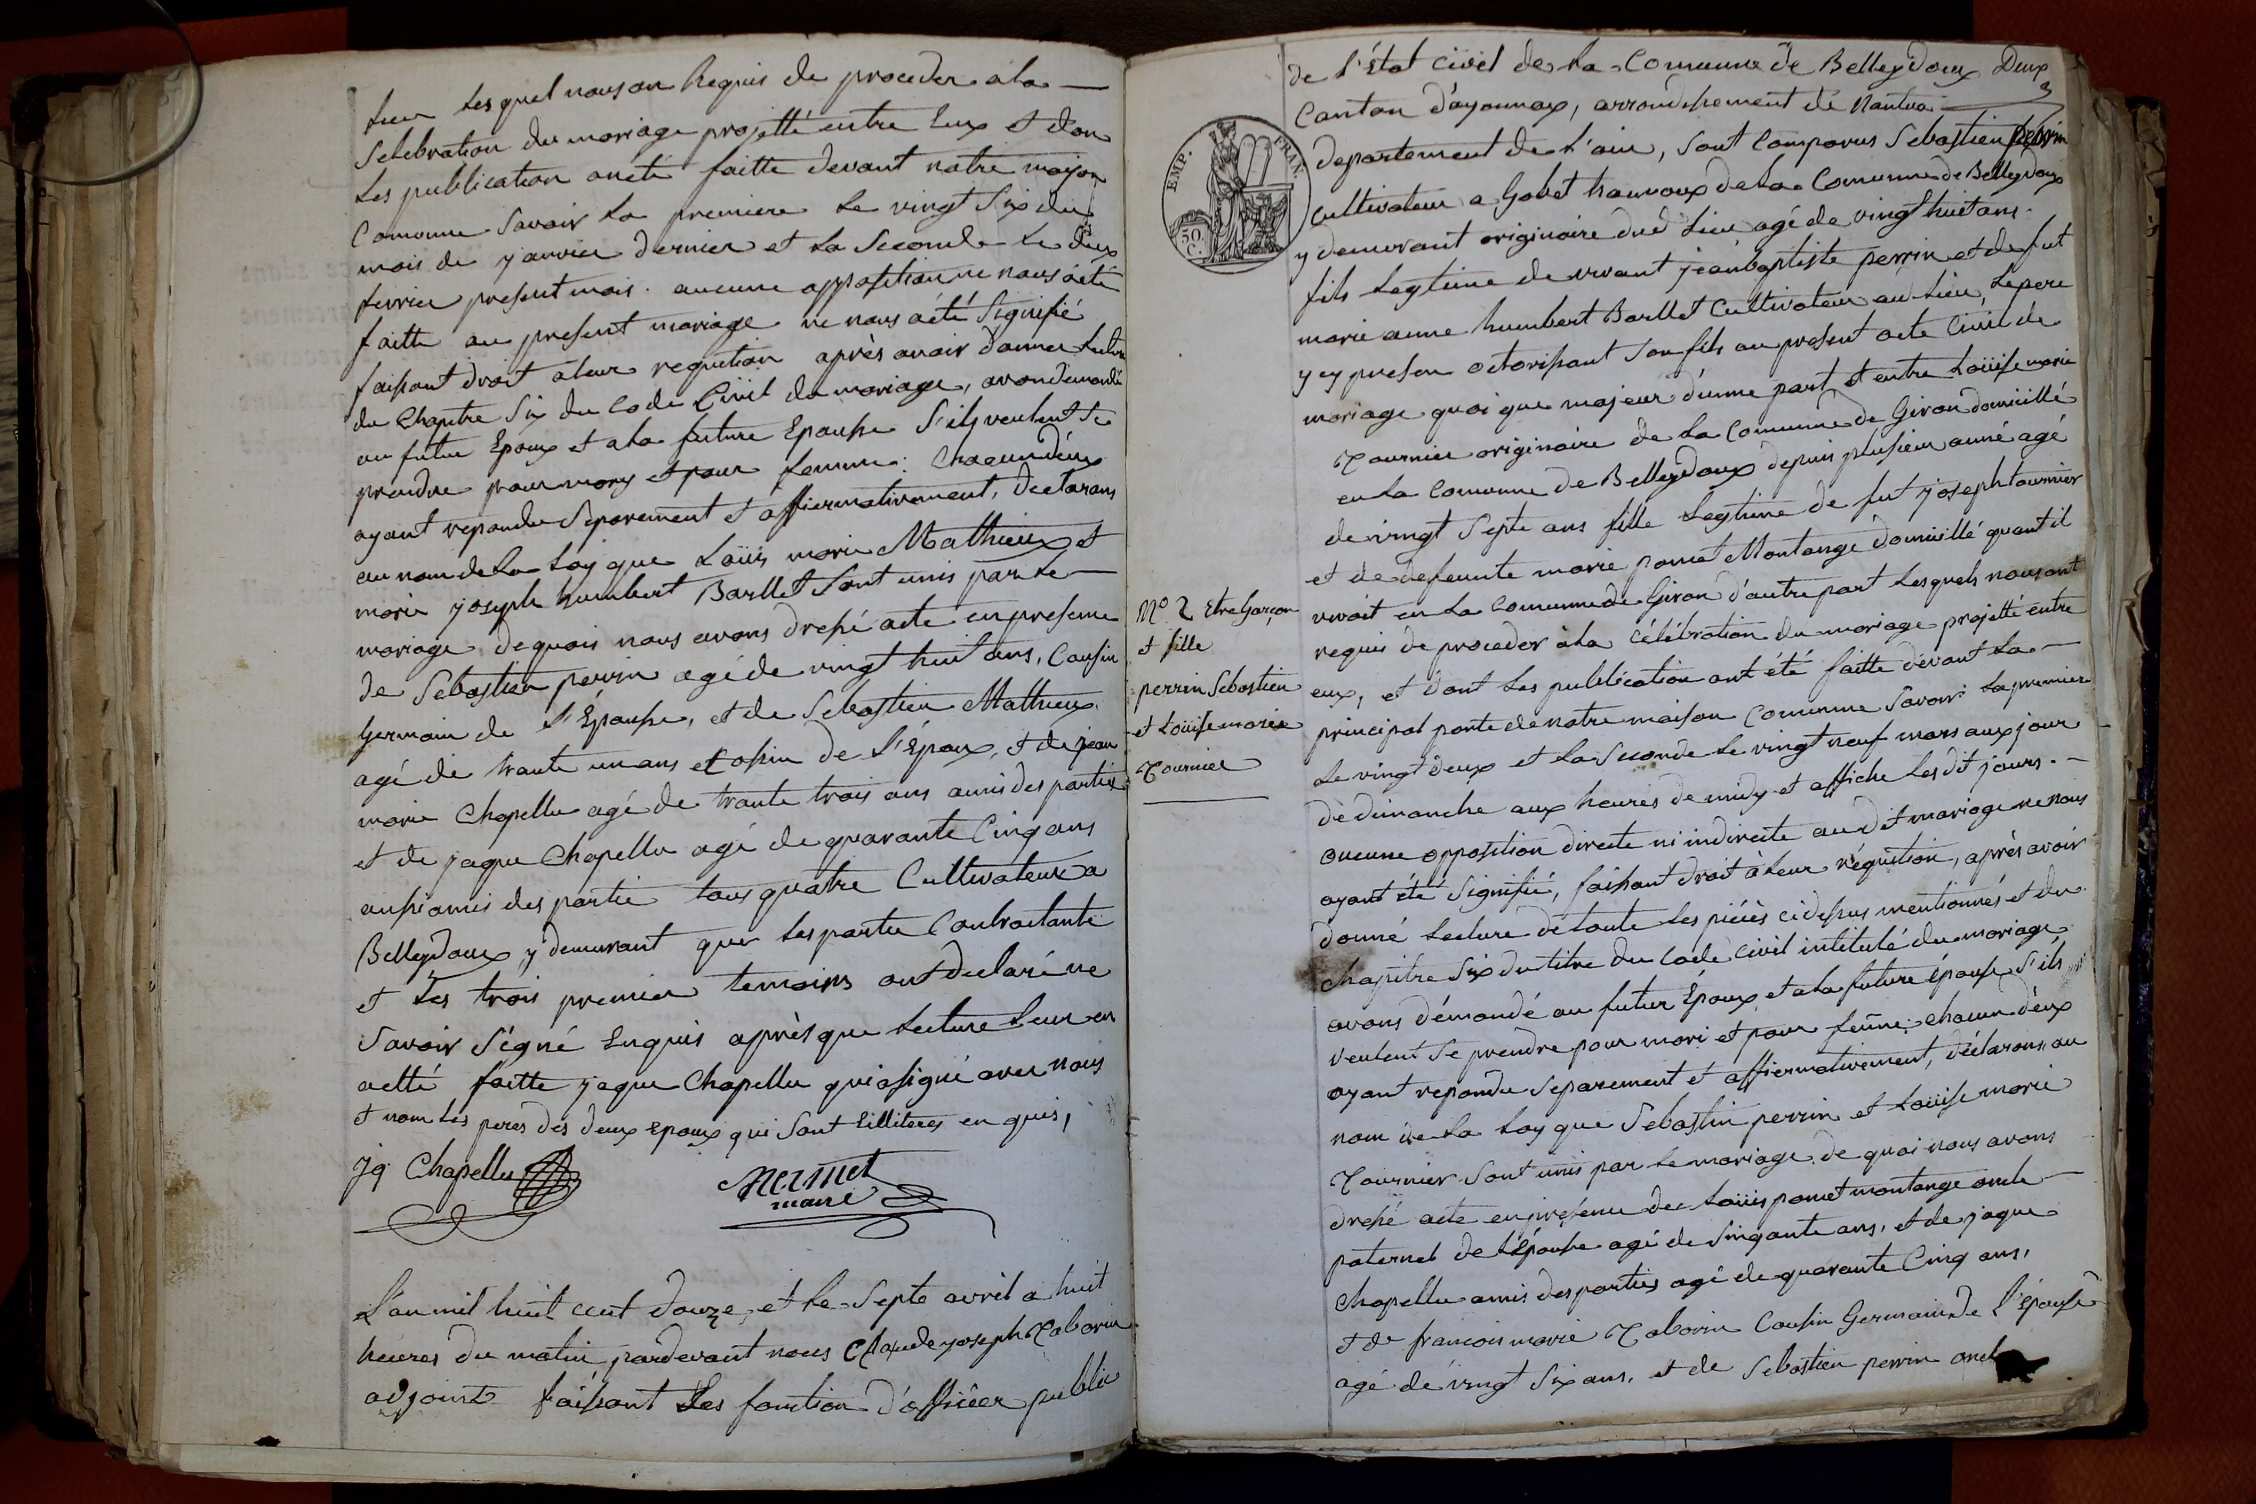 lieu lesquel nous on Requis de proceder a la
Selebration du mariage projetté entre Eux et don
les publication onété faitte devant notre maison
Comunne Savoir la premiere le vingt Six du
mois de janvier dernier et la Seconde le deux
fevrier present mois. aucune opposition ne nous aété
faitte au present mariage ne nous aété Signifié
faisant droit aleur requition après avoir donner lecture
du Chapitre Six du Code Civil du mariage, avon demandé
au futur Epoux et a la future Epouse S'ils veulent Se
prendre pour mary et pour femme: Chacun deux
ayant repondu Separement et affiermativement, declarons
au nom de la Loy que Loüis marie Mathieux et
marie joseph humbert Barllet Sont unis par le
mariage dequois nous avons dressé acte enpresence
de Sebastien perrin agé de vingt huit ans, Cousin
Germain de l'Epouse, et de Sebastien Mathieux
agé de trante un ans et de
marie Chapellu agé de trante trois ans amis des partis
et de jaque Chapellu agé de quarante Cinq ans
aussi amis des partie tous quatre Cultivateur a
Belleydoux y demeurant que les partie Contractante
et les trois premier temoins ont declaré ne
Savoir Signé Enquis après que lecture leur en
aetté faitte jaque Chapellu qui asigné avec nous
et nom les peres des deux epoux qui Sont Eilliteres en quis,
Jq Chapellu
Mermet
maire
L'an mil huit cent douze, et le Septe avril a huit
heures du matin, pardevant nous Claude joseph Taborin
adjoint faisant Les fonction d'officier public
de l'état civil de la Comunne de Belleydoux Deux
Canton d'ayonnax, arrondissement de Nantua
departement de l'ain, Sont Comparus Sebastien perrin
Cultivateur a Gobet hauvoux de la Comunne de Belleydoux
y demeurant originaire dud Lieu agé de vingt huit ans.
fils Legtime de vivant jeanbaptiste perrin et de fut
marie anne humbert Barllet Cultivateur au Lieu, Le pere
y ey presen octorisant Son fils au present acte Civil de
mariage quoi que majeur d'unne part et entre Loüise marie
Tournier originaire de la Comunne de Giron domicillé
en la Comunne de Belleydoux depuis plusieur anné agé
de vingt Septe ans fille Legtime de fut joseph tournier
et de defeunte marie pomet Montange domicillé quant il
vivoit en la Comunne de Giron d'autre part Lesquels nous ont
requis de proceder à la Célébration du mariage projetté entre
eux, et dont les publication ont été faitte devant la
principal porte de notre maison Comunne Savoir la premier
Le vingt deux et la Seconde Le vingt neuf mars aux jour
de dimanche aux heures de midy et affiche Les dit jours.
aucune opposition directe ni indirecte audit mariage ne nous
ayant été Signifié, faisant droit à leur réquition, après avoir
donné lecture de toute les piéces ci dessus mentionnés et du
chapitre Six du titre du Code Civil intitulé du mariage
avons démandé au futur Epoux et a la future épouse S'ils
veulent Se prendre pour mari et pour feme: chacun d'eux
ayant repondu Separement et affiermativement, déclarons, au
nom de la Loy que Sebastin perrin et Loüise marie
Tournier Sont unis par le mariage de quoi nous avons
dressé acte en présence de Loüis pomet montange oncle
paternel de l'Epouse agé de Sinqante ans, et de jaque
Chapellu amis des parties agé de quarante Cinq ans,
et de francois marie Taborin Cousin Germain de l'épouse
agé de vingt Six ans, et de Sebastien perrin oncle
EMP. FRAN.
50
C.
No 2 Etre Garçon
et fille
perrin Sebastien
et Loüise marie
Tournier